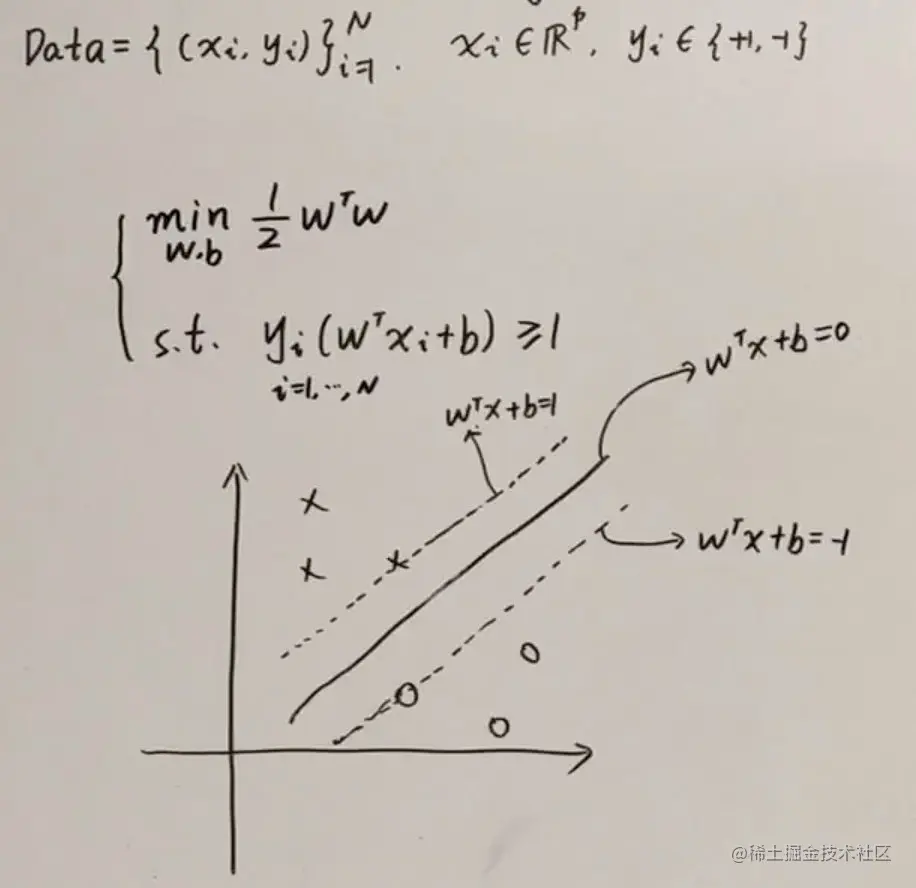 Data = { (xᵢ, yᵢ) }ᵢ₌₁ᴺ . xᵢ ∈ ℝᵖ, yᵢ ∈ {+1, -1}
min 1/2 wᵀw
w.b
s.t. yᵢ (wᵀxᵢ+b) ≥ 1
i=1, ..., N
wᵀx+b=0
wᵀx+b=1
wᵀx+b=-1
@稀土掘金技术社区